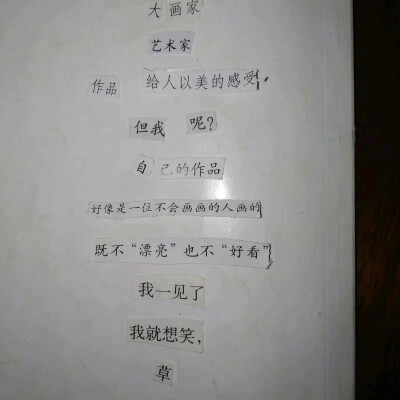 大画家
艺术家
作品 给人以美的感受,
但我 呢?
自己的作品
好像是一位不会画画的人画的
既不“漂亮”也不“好看”
我一见了
我就想笑,
草